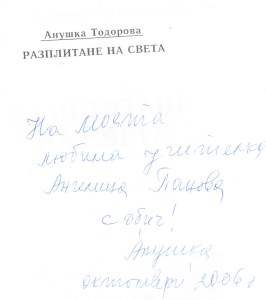 Анушка Тодорова
РАЗПЛИТАНЕ НА СВЕТА
На моята
любима учителка
Ангелина Панова
с обич!
Анушка
октомври 2006 г.